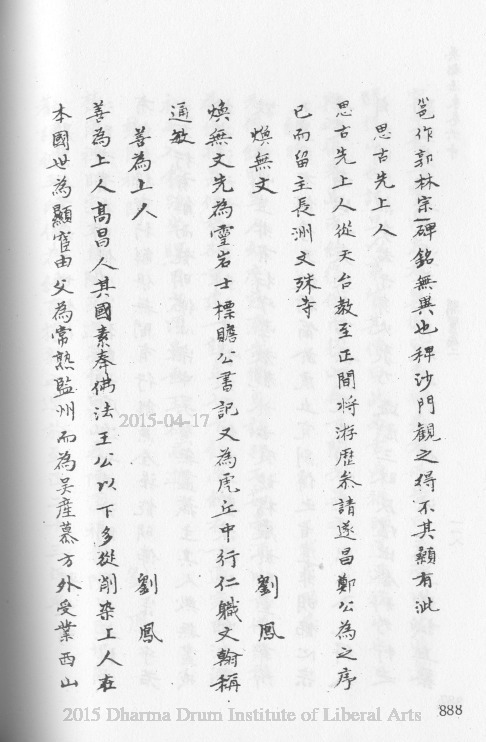 邕作郭林宗碑銘無異也稗沙門観之得不其顙有泚
思古先上人
思古先上人從天台教至正間將游歷叅請遂昌鄭公為之序
已而留主長洲文殊寺
煥無文 劉鳳
煥無文先為靈岩士標贍公書記又為虎丘中行仁職文翰稱
通敏
善為上人 劉鳳
善為上人髙昌人其國素奉佛法王公以下多從削染上人在
本國世為顯宦由父為常熟監州而為吴産慕方外受業西山
2015-04-17
2015 Dharma Drum Institute of Liberal Arts
888